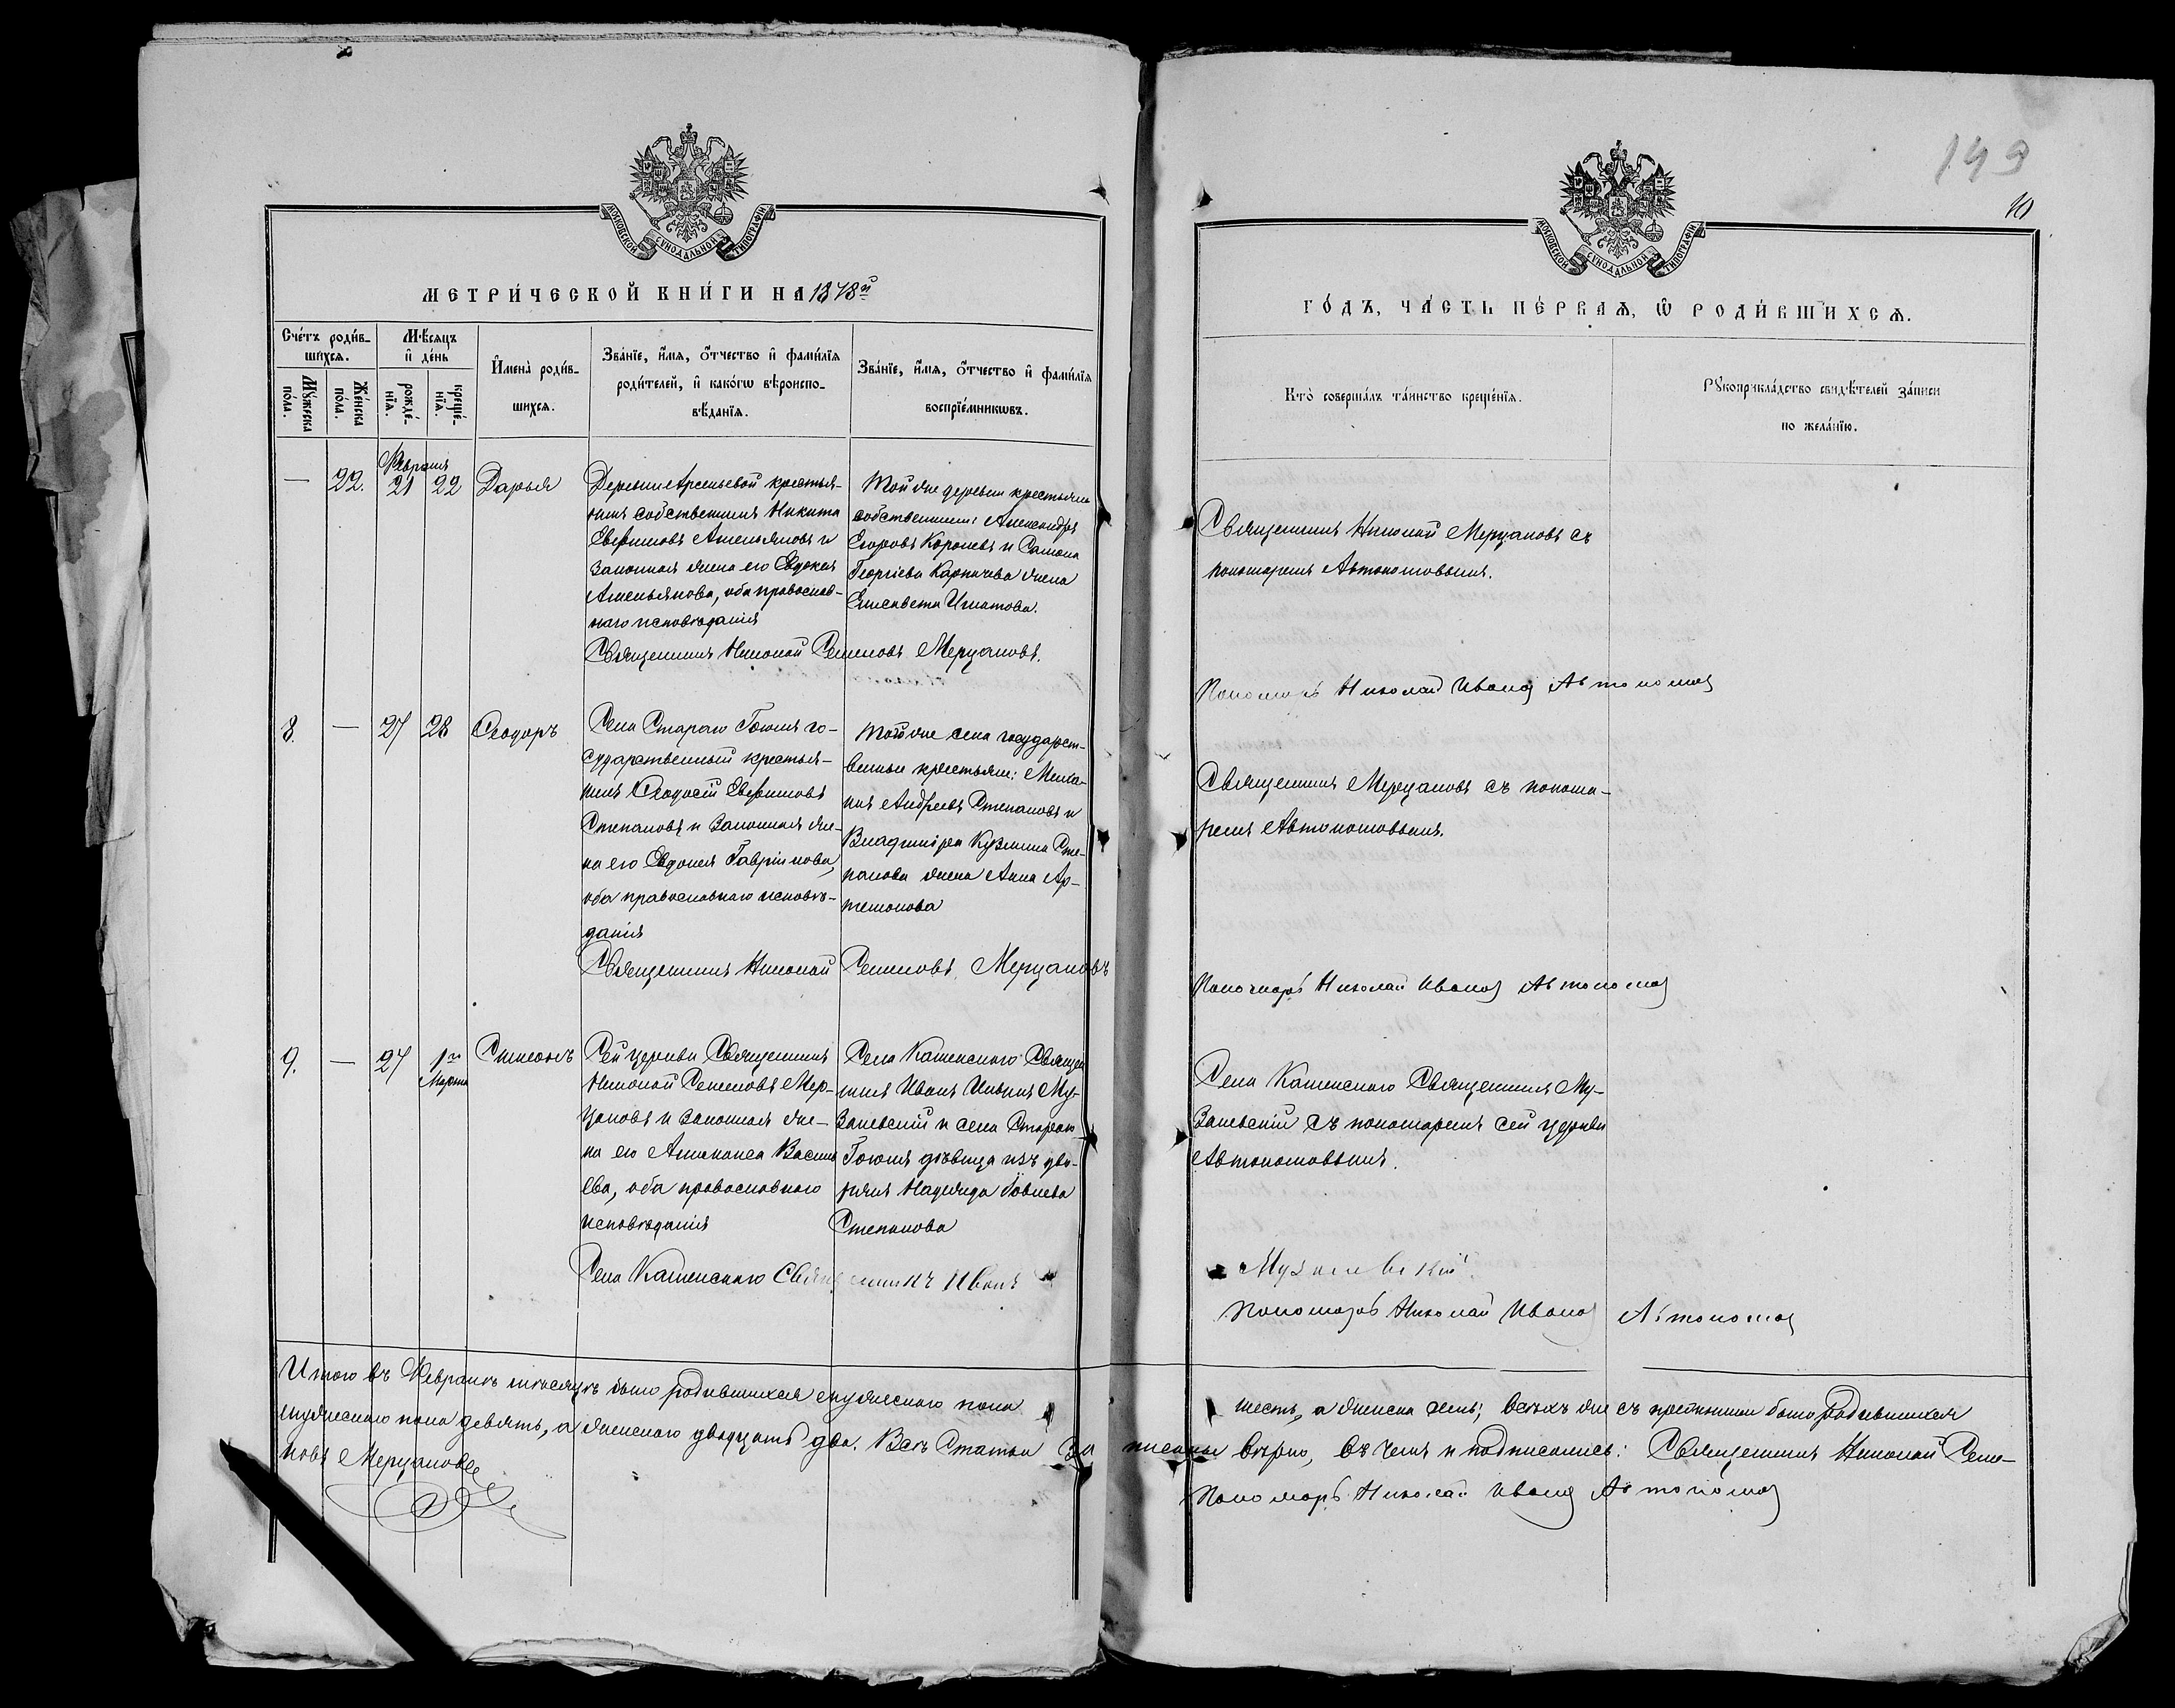 149
10
МОСКОВСКОЙ СУНОДАЛЬНОЙ ТИПОГРАФІИ
МОСКОВСКОЙ СУНОДАЛЬНОЙ ТИПОГРАФІИ
МЕТРИ́ЧЕСКОЙ КНИ́ГИ НА 1878й
ГО́ДЪ, ЧА́СТЬ ПЕ́РВАѦ, Ѡ҆ РОДИ́ВШИХСѦ.
Сче́тъ роди́в-
шихсѧ.
Мꙋжеска по́ла.
Же́нска по́ла.
Мѣ́сѧцъ
и҆ де́нь
рожде́-
нїѧ.
креще́-
нїѧ.
И҆мена̀ роди́в-
шихсѧ.
Зва́нїе, и҆́мѧ, ѻ҆́тчество и҆ фами́лїѧ
роди́телей, и҆ како́гѡ вѣроиспо-
вѣ́данїѧ.
Зва́нїе, и҆́мѧ, ѻ҆́тчество и҆ фами́лїѧ
воспрїе́мникѡвъ.
Кто̀ соверша́лъ та́инство креще́нїѧ.
Рꙋкоприкла́дство свидѣ́телей за́писи
по жела́нїю.
Февраля
— 22. 21 22 Дарья
Деревни Арсеньевой крестья-
нинъ собственникъ Никита
Евфимовъ Амельяновъ и
законная жена его Евдокия
Амельянова, оба православ-
наго исповѣданія
Той же деревни крестьяне
собственники: Александръ
Егоровъ Королевъ и
Георгіева жена
Елисавета Игнатова.
Священникъ Николай Мерцаловъ съ
пономаремъ Автономовымъ.
Священникъ Николай Семеновъ Мерцаловъ.
Пономарь Николай Иванов Автономов
8. — 27 28 Ѳеодоръ
Села Стараго Гоголя го-
сударственный крестья-
нинъ Ѳеодосій Евфимовъ
Степановъ и законная же-
на его Евдокия Гавріилова,
оба православнаго исповѣ-
данія
Той же села государст-
венные крестьяне: Миха-
илъ Андреевъ Степановъ и
Владиміра Кузьмина Сте-
панова жена Анна Ар-
темонова
Священникъ Мерцаловъ съ понома-
ремъ Автономовымъ.
Священникъ Николай Семеновъ Мерцаловъ
Пономарь Николай Иванов Автономов
9. — 27 1го Марта Симеонъ
Сей церкви Священникъ
Николай Семеновъ Мер-
цаловъ и законная же-
на его Васильева, оба православнаго
исповѣданія
Села Каменскаго Священ
никъ Иванъ Ильинъ Му-
залевскій и села Стараго
Гоголя дѣвица изъ дво-
рянъ Надежда
Степанова
Села Каменскаго Священникъ Му-
залевскій съ пономаремъ сей церкви
Автономовымъ.
Села Каменскаго Священникъ Иванъ
Музалевскій
Пономарь Николай Иванов Автономов
Итого въ Февралѣ мѣсяцѣ было родившихся мужескаго пола
шесть, а женска семь; всѣхъ же съ прежними было родившихся
мужескаго пола девять, а женскаго двадцать два. Всѣ Статьи За
писаны вѣрно, въ чемъ и подписались: Священникъ Николай Семе-
новъ Мерцаловъ
Пономарь Николай Иванов Автономов